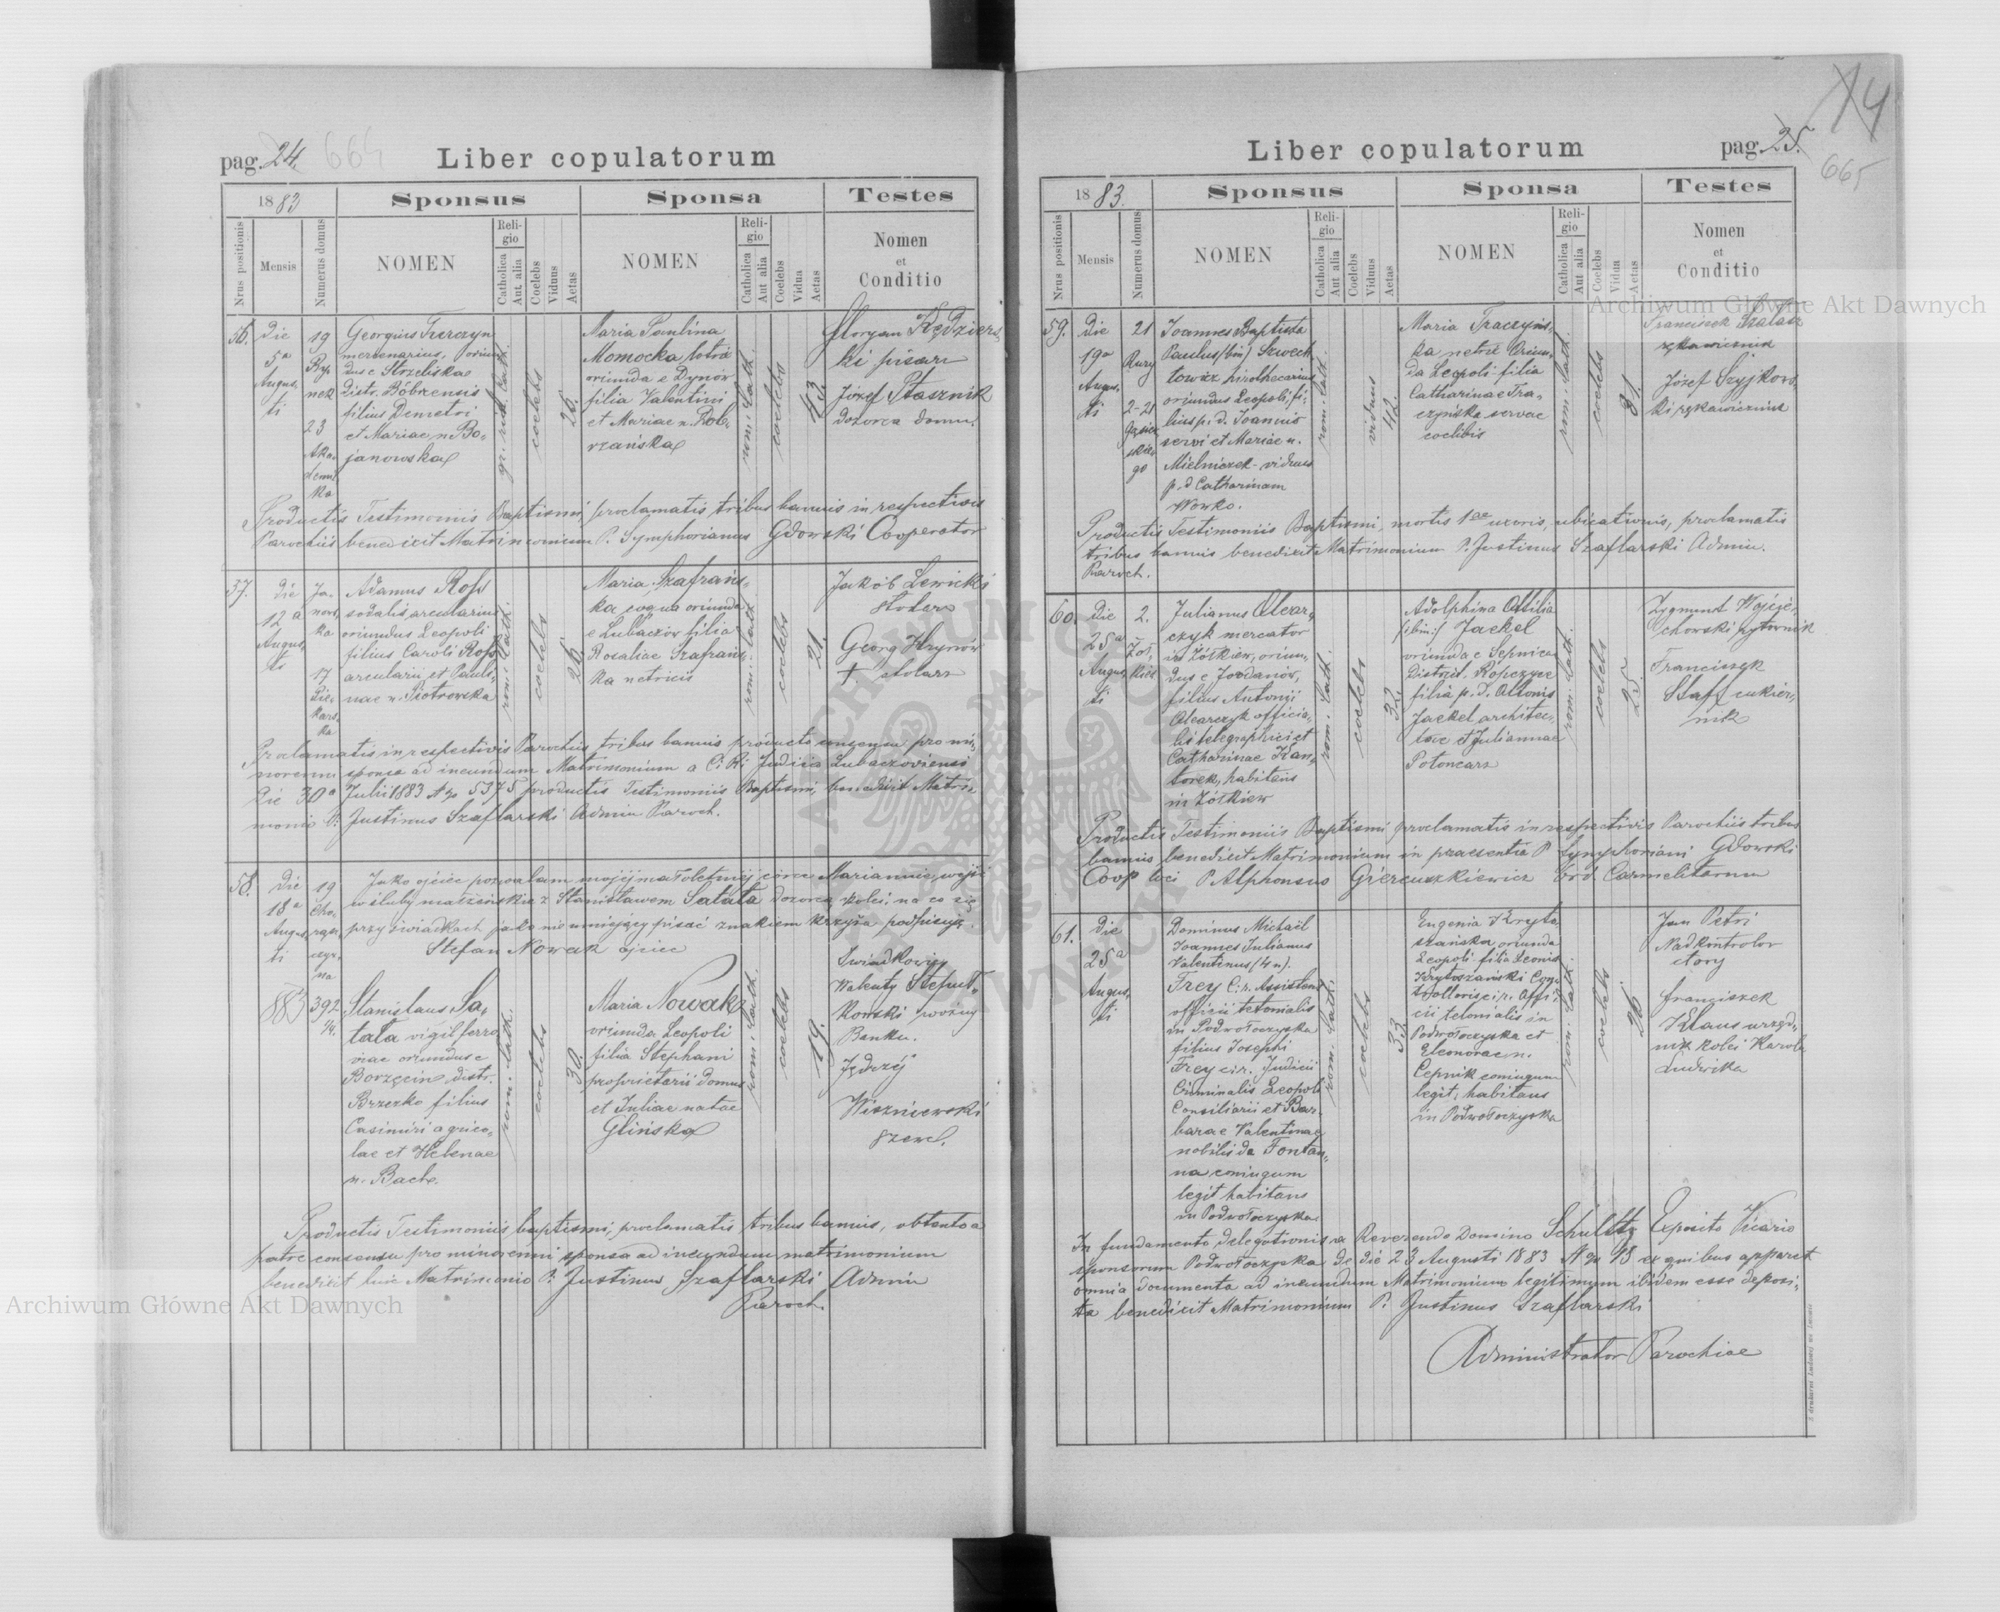 pag. 24. 664
Liber copulatorum
1883
Sponsus
Sponsa
Testes
Nrus positionis
Mensis
Numerus domus
NOMEN
Religio
Catholica
Aut alia
Coelebs
Viduus
Aetas
NOMEN
Religio
Catholica
Aut alia
Coelebs
Vidua
Aetas
Nomen
et
Conditio
56.
Die
5a
Augus,
ti
19
Ryn
nek
23
Aka-
demic
ka
Georgius Turczyn
mercenarius, oriun
dus e Strzeliska
Distr. Bóbrensis
filius Demetri
et Mariae n. Bo-
janowska
gr. rit. cath.
coelebs
26.
Maria Paulina
Momocka lotrix
oriunda e Dynów
filia Valentini
et Mariae n. Dob-
rzańska
rom. cath.
coelebs
43.
Floryan Kędziers,
ki pisarz
Józef Ptasznik
dozorca domu.
Productis Testimoniis Baptismi, proclamatis tribus bannis in respectivis
Parochiis benedixit Matrimonium P. Symphorianus Gdowski Cooperator
57.
Die
12a
Augus,
ti
Ja-
nows,
ka
17
Pie-
kars,
ka
Adamus Ross
sodalis arcularius
oriundus Leopoli
filius Caroli Ross
arcularii et Pauli-
nae n. Piotrowska
rom. cath.
coelebs
26.
Maria Szafrańs-
ka coqua oriunda
e Lubaczów filia
Rosaliae Szafrańs,
ka netricis
rom. cath.
coelebs
21.
Jakób Lewicki
stolarz
Georg Hrynów
† stolarz
Proclamatis in respectivis Parochiis tribus bannis producto consensu pro mi,
norenni sponsa ad ineundum Matrimonium a C. R. Judicio Lubaczoviensi
Die 30a Julii 1883 N ro 5375 productis Testimoniis Baptismi, benedixit Matri-
monio P. Justinus Szaflarski Admin Paroch.
58.
Die
18a
Augus,
ti
883
19
Cho-
rąż-
czyz-
na
392
1/4.
Jako ojciec pozwalam mojej małoletniej córce Mariannie, wejść
w śluby małżeńskie z Stanisławem Satała dozorcą kolei, na co się
przy świadkach jako nie umiejący pisać znakiem krzyża podpisuję.
Stefan Nowak ojciec
Stanislaus Sa-
tała vigil ferro
viae oriundus e
Borzęcin distr.
Brzezko filius
Casimiri agrico-
lae et Helenae
n. Bach.
rom. cath.
coelebs
30.
Maria Nowak
oriunda Leopoli
filia Stephani
proprietarii domus
et Juliae natae
Glińska
rom. cath.
coelebs
19.
Świadkowie
Walenty Stefuł-
kowski woźny
Banku.
Jędrzej
Wiszniewski
szewc.
Productis Testimoniis baptismi, proclamatis tribus bannis, obtento a
patre consensu pro minorenni sponsa ad ineundum matrimonium
benedixit huic Matrimonio P. Justinus Szaflarski Admin
Paroch.
Liber copulatorum
pag. 25.
665
1883.
Sponsus
Sponsa
Testes
Nrus positionis
Mensis
Numerus domus
NOMEN
Religio
Catholica
Aut alia
Coelebs
Viduus
Aetas
NOMEN
Religio
Catholica
Aut alia
Coelebs
Vidua
Aetas
Nomen
et
Conditio
59.
Die
19a
Augus,
ti
21
Rury
2-21
Ioannes Baptista
Paulus (bin) Szwech
towicz pirothecarius
oriundus Leopoli, fi-
lius p. d. Joannis
servi et Mariae n.
Mielniczek - viduus
p. d Catharinam
Wowko.
rom. cath.
viduus
42.
Maria Traczyńs,
ka netrix Oriun-
da Leopoli filia
Catharinae Tra-
czyńska servae
coelibis
rom. cath.
coelebs
31.
Franciszek
rękawicznik
Józef Szyjkows
ki rękawicznik
Productis Testimoniis Baptismi, mortis 1ae uxoris, ubicationis, proclamatis
tribus bannis benedixit Matrimonium P. Justinus Szaflarski Admin.
Paroch.
60.
Die
25a
Augus,
ti
2.
Żoł,
kiew
Julianus Olear,
czyk mercator
in Żółkiew, oriun,
dus e Jordanów,
filius Antonii
Olearczyk officia-
lis telegraphici et
Catharinae Kan-
torek, habitans
in Żółkiew
rom. cath.
coelebs
32.
Adolphina Ottilia
(bin:) Jaekel
oriunda e Sepnica
District. Ropczyce
filia p. d. Antonis
Jaekel architec-
tae et Juliannae
Potoncarz
rom. cath.
coelebs
25.
Zygmunt Wojcie-
chowski sztornik
Franciszek
Staff cukier-
nik
Productis Testimoniis Baptismi proclamatis in respectivis Parochiis tribus
bannis benedixit Matrimonium in praesentia P Symphoriani Gdowski
Coop loci P Alphonsus Giercuszkiewicz Ord. Carmelitarum
61.
Die
25a
Augus,
ti
Dominus Michaël
Joannes Julianus
Valentinus (4 n).
Frey C. r. Assistens
officii telonialis
in Podwołoczyska
filius Josephi
Frey c. r. Judicii
Criminalis Leopoli
Consiliarii et Bar-
barae Valentinae
nobilis de Fontan,
na coniugum
legit habitans
in Podwołoczyska
rom. cath.
coelebs
33.
Eugenia Kryta-
szańska oriunda
Leopoli filia Leonis
Krytoszański Con,
trolloris c. r. Offi-
cii telonialis in
Podwołoczyska et
Eleonorae n.
Cepnik coniugum
legit, habitans
in Podwołoczyska
rom. cath.
coelebs
26.
Jan Petri
Nadkontrolor
cłowy
Franciszek
Klaus urzęd-
nik kolei Karola
Ludwika
In fundamento delegationis a Reverendo Domino Schultz Exposito Vicario
sponsorum Podwołoczyska de die 23 Augusti 1883 N ro 93 ex quibus apparet
omnia documenta ad ineundum Matrimonium legitimum ibidem esse deposi-
ta benedixit Matrimonium P. Justinus Szaflarski
Administrator Parochiae
Z drukarni Ludowej we Lwowie
Archiwum Główne Akt Dawnych
Archiwum Główne Akt Dawnych